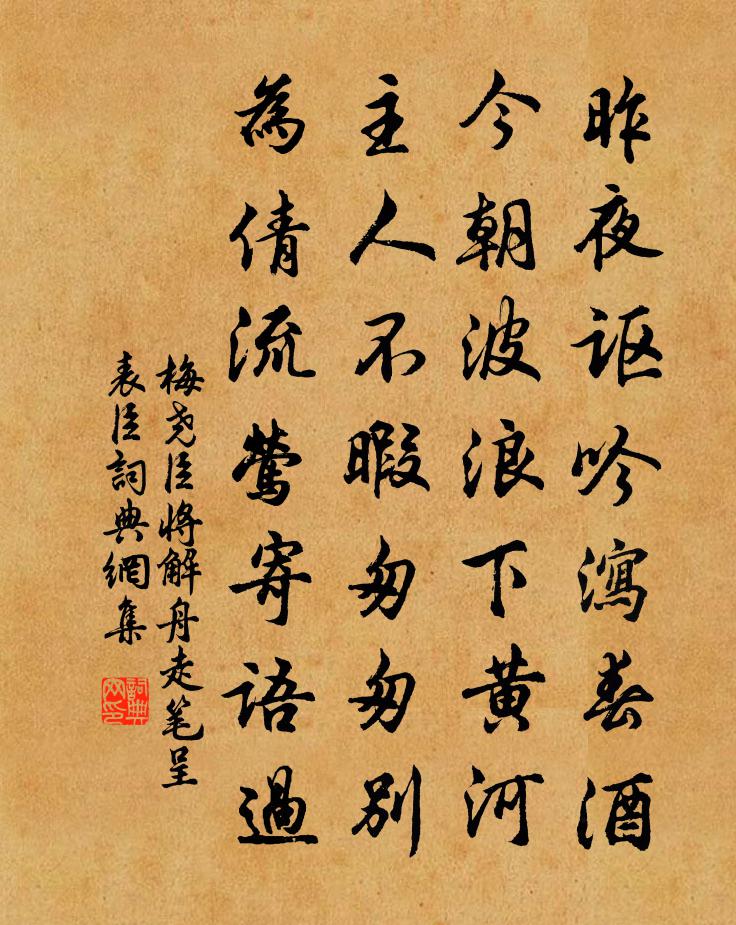 昨夜讴吟瀉春酒
今朝波浪下黄河
主人不暇匆匆别
為倩流鶯寄语過
梅尧臣將解舟走笔呈
表臣詞典網集
詞典网印